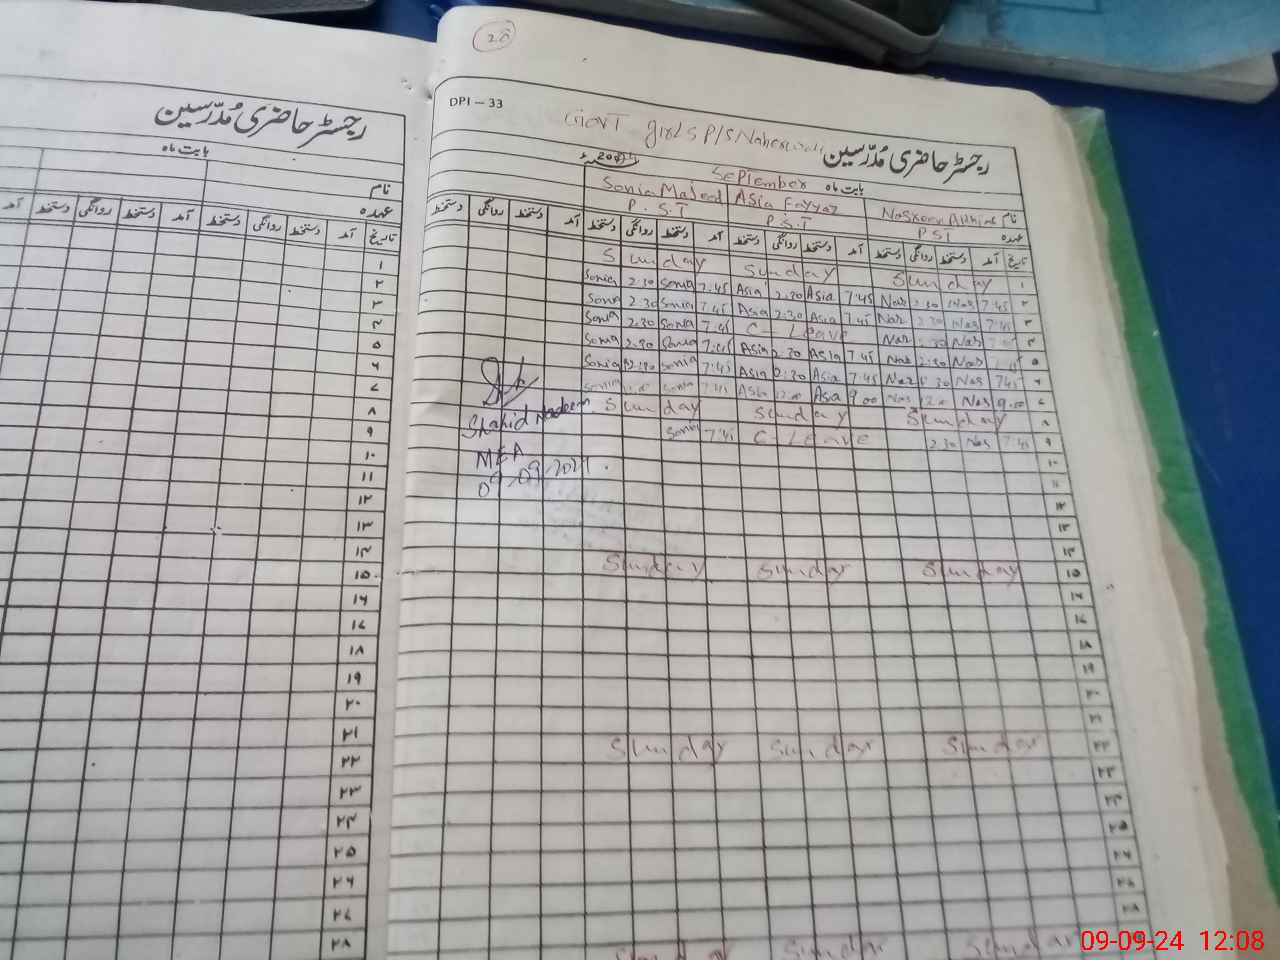 رجسٹر حاضری مُدرّسین
بابت ماہ
نام
عہدہ
تاریخ آمد دستخط روانگی دستخط آمد دستخط روانگی دستخط آمد
۱
۲
۳
۴
۵
۶
۷
۸
۹
۱۰
۱۱
۱۲
۱۳
۱۴
۱۵
۱۶
۱۷
۱۸
۱۹
۲۰
۲۱
۲۲
۲۳
۲۴
۲۵
۲۶
۲۷
۲۸
28
DPI – 33
GOVT girls P/S
رجسٹر حاضری مُدرّسین
بابت ماہ September
Sonia Majeed Asia Fayyaz نام
P.S.T P.S.T PST عہدہ
تاریخ آمد دستخط روانگی دستخط آمد دستخط روانگی دستخط آمد دستخط روانگی دستخط آمد دستخط روانگی دستخط
Sunday Sunday Sunday ۱
Sonia 2:30 Sonia 7:45 Asia 2:30 Asia 7:45 Nas 2:30 Nas 7:45 ۲
Sonia 2:30 Sonia 7:45 Asia 2:30 Asia 7:45 Nas 2:30 Nas 7:45 ۳
Sonia 2:30 Sonia 7:45 C-Leave Nas 2:30 Nas 7:45 ۴
Sonia 2:30 Sonia 7:45 Asia 2:30 Asia 7:45 Nas 2:30 Nas 7:45 ۵
Sonia 12:00 Sonia 7:45 Asia 2:30 Asia 7:45 Nas 2:30 Nas 7:45 ۶
Sonia Sonia 7:45 Asia 12:00 Asia 9:00 Nas 12:00 Nas 9:00 ۷
Sunday Sunday Sunday ۸
Sonia 7:45 C-Leave 2:30 Nas 7:45 ۹
Shahid Nadeem
MEA
09-09-2024.
۱۰
۱۱
۱۲
۱۳
۱۴
Sunday Sunday Sunday ۱۵
۱۶
۱۷
۱۸
۱۹
۲۰
۲۱
Sunday Sunday Sunday ۲۲
۲۳
۲۴
۲۵
۲۶
۲۷
۲۸
Sunday Sunday Sunday
09-09-24 12:08